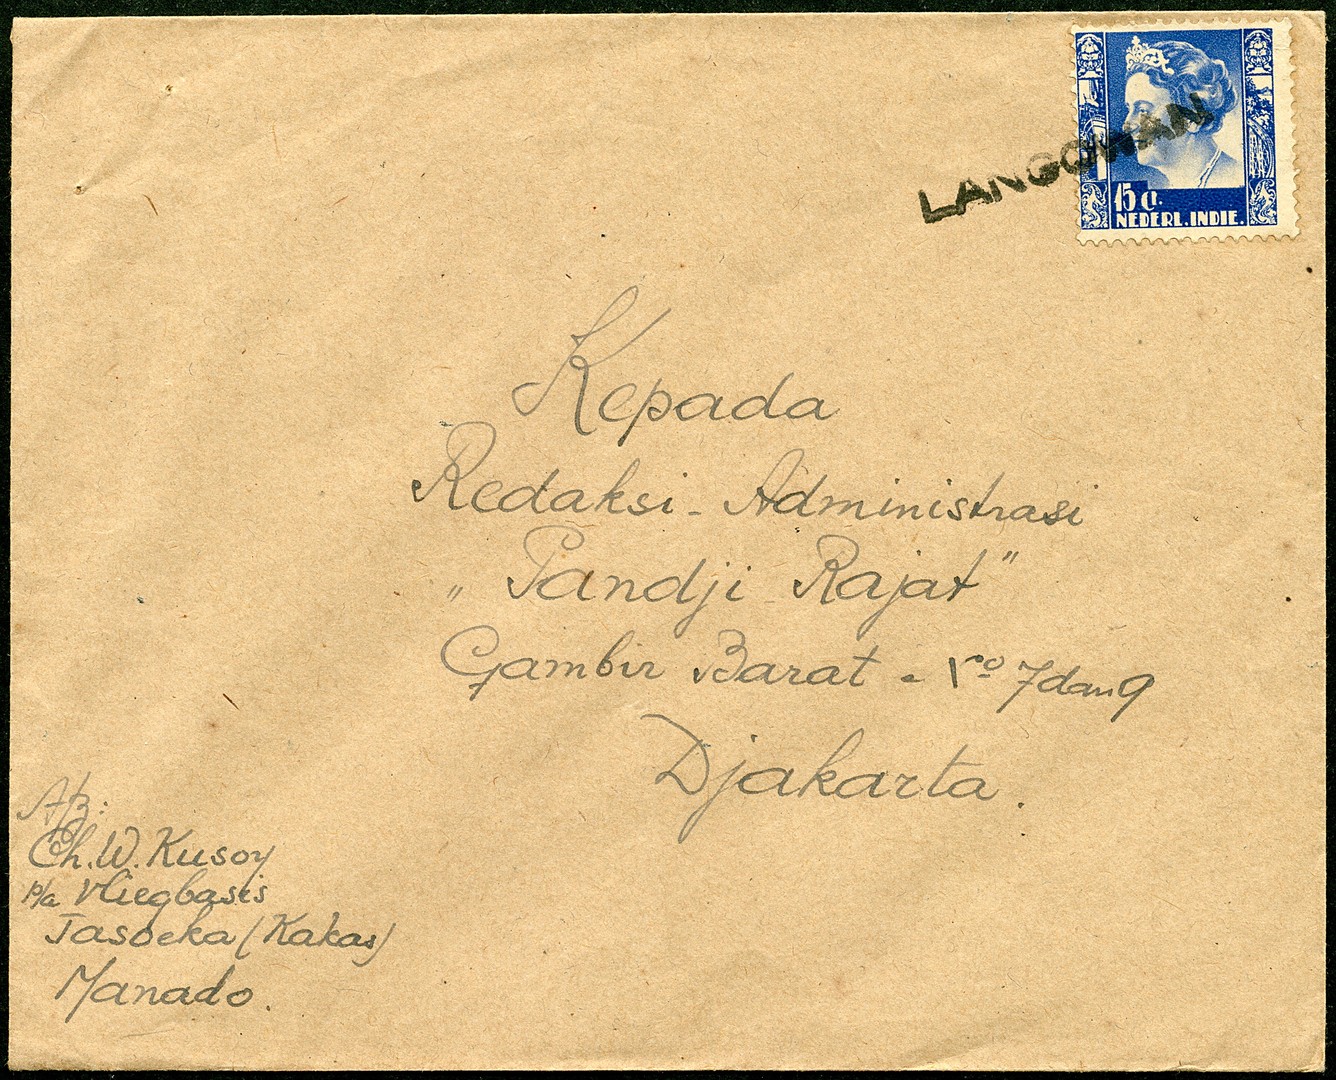 LANGOWAN
15 ct.
NEDERL. INDIE.
Kepada
Redaksi - Administrasi
„Pandji Rajat"
Gambir Barat - No 7 dan 9
Djakarta.
A/z:
Ch. W. Kusoy
p/a Vliegbasis
Tasoeka (Kakas)
Manado.